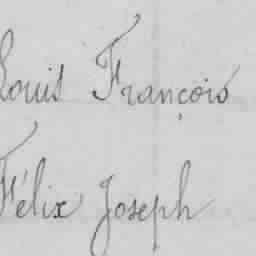 Louis François
Félix Joseph